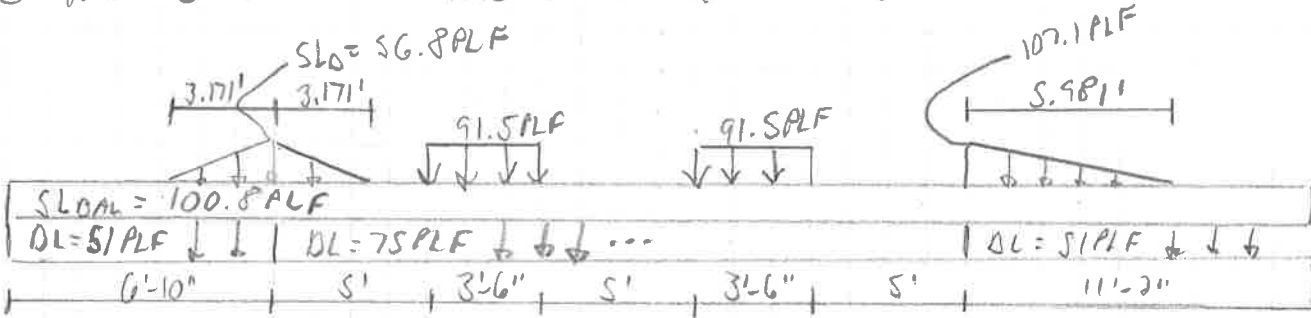 SL△= 56.8PLF
107.1PLF
3.171' 3.171'
5.981'
91.5PLF
91.5PLF
SLBAL = 100.8 PLF
DL=51PLF
DL=75PLF ...
DL=51PLF
6'-10" 5' 3'-6" 5' 3'-6" 5' 11'-2"